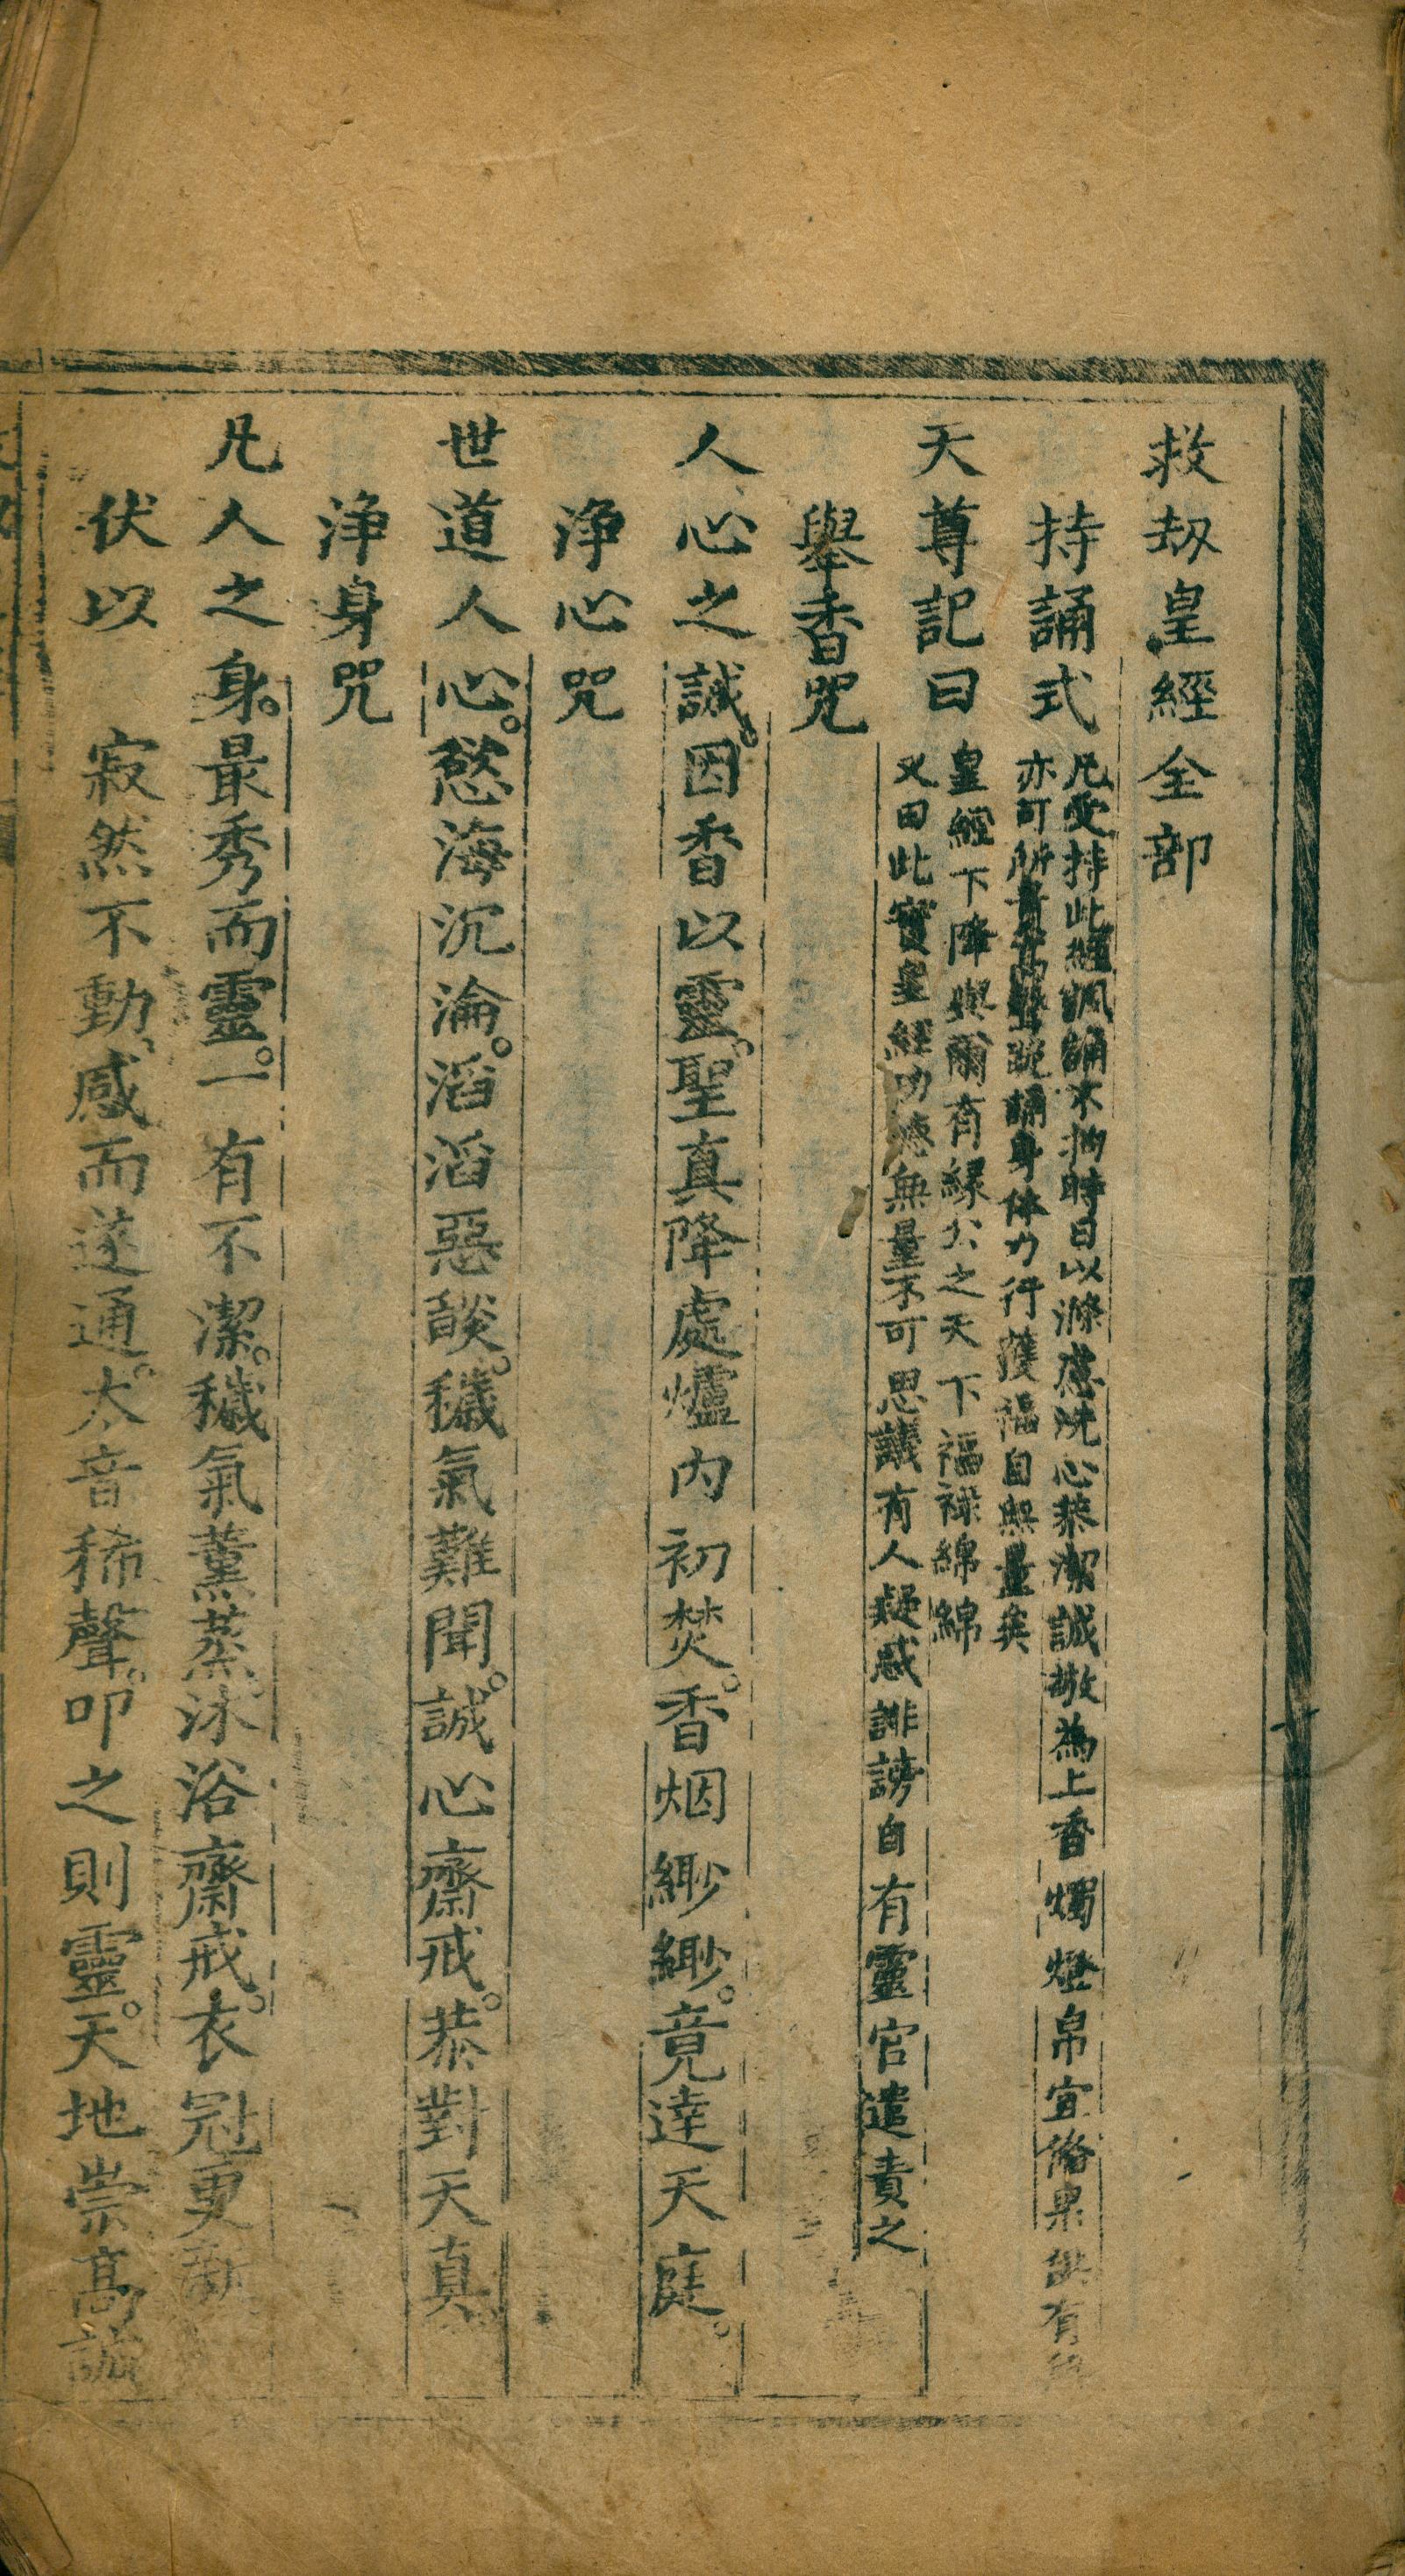 救劫皇經全部
持誦式
凡受持此經諷誦不拘時日以滌慮洗心恭潔誠敬為上香燭燈帛宜俻果供有
亦可所貴高聲跪誦身体力行獲福自無量矣
天尊記曰
皇經下降與爾有緣公之天下福祿綿綿
又曰此寶皇經功德無量不可思議有人疑惑誹謗自有靈官遣責之
舉香咒
人心之誠。因香以靈。聖真降處爐内初焚。香烟緲緲。竟達天庭。
浄心咒
世道人心。慾海沉淪。滔滔惡談。穢氣難聞。誠心齋戒。恭對天真
浄身咒
凡人之身。最秀而靈。一有不潔。穢氣薰蒸沐浴齋戒。衣冠更新
伏以　寂然不動、感而遂通。太音稀聲。叩之則靈。天地崇高誠